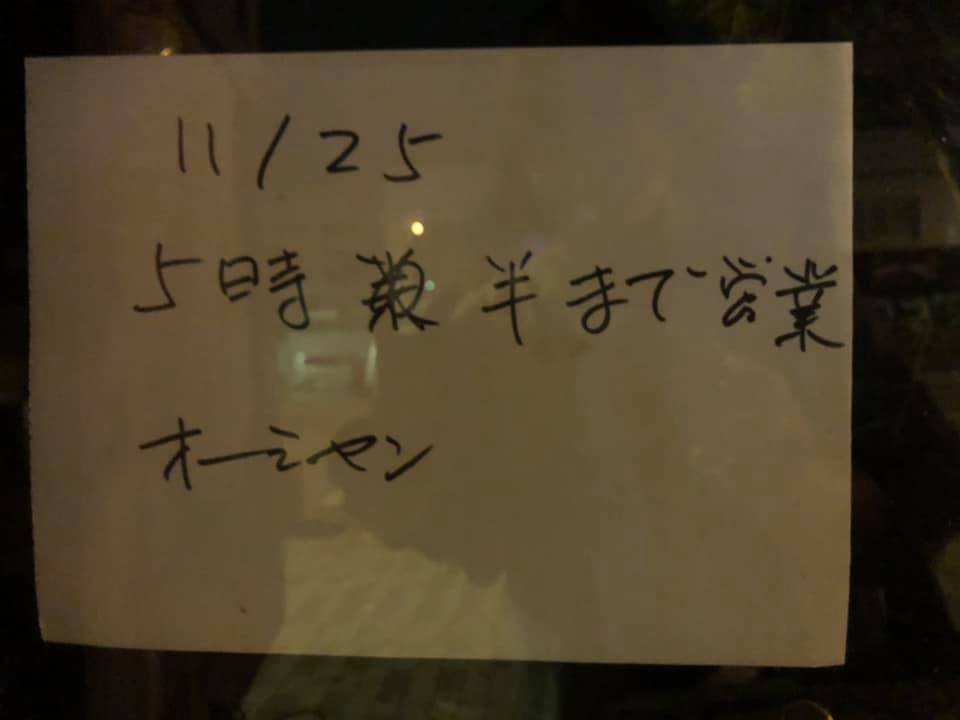 11/25
5時 半まで営業
オーシャン